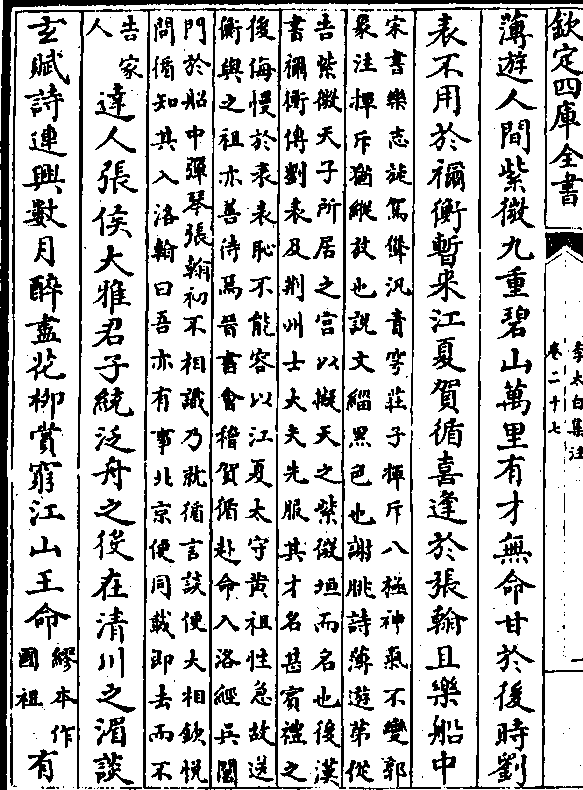 欽定四庫全書
李太白集注
卷二十七
薄遊人間紫微九重碧山萬里有才無命甘於後時劉
表不用於禰衡暫来江夏賀循喜逢於張翰且樂船中
宋書樂志旋駕聳汎青穹莊子揮斥八極神氣不變郭
象注揮斥猶縱放也說文緇黑色也謝朓詩薄遊第從
告紫微天子所居之宫以擬天之紫微垣而名也後漢
書禰衡傳劉表及荆州士大夫先服其才名甚賓禮之
後侮慢於表表恥不能容以江夏太守黄祖性急故送
衡與之祖亦善待焉晉書會稽賀循赴命入洛經吳閶
門於船中彈琴張翰初不相識乃就循言談便大相欽悦
問循知其入洛翰曰吾亦有事北京便同載即去而不
告家
人
達人張侯大雅君子統泛舟之役在清川之湄談
玄賦詩連興數月醉盡花柳賞窮江山王命
繆本作
國祖
有